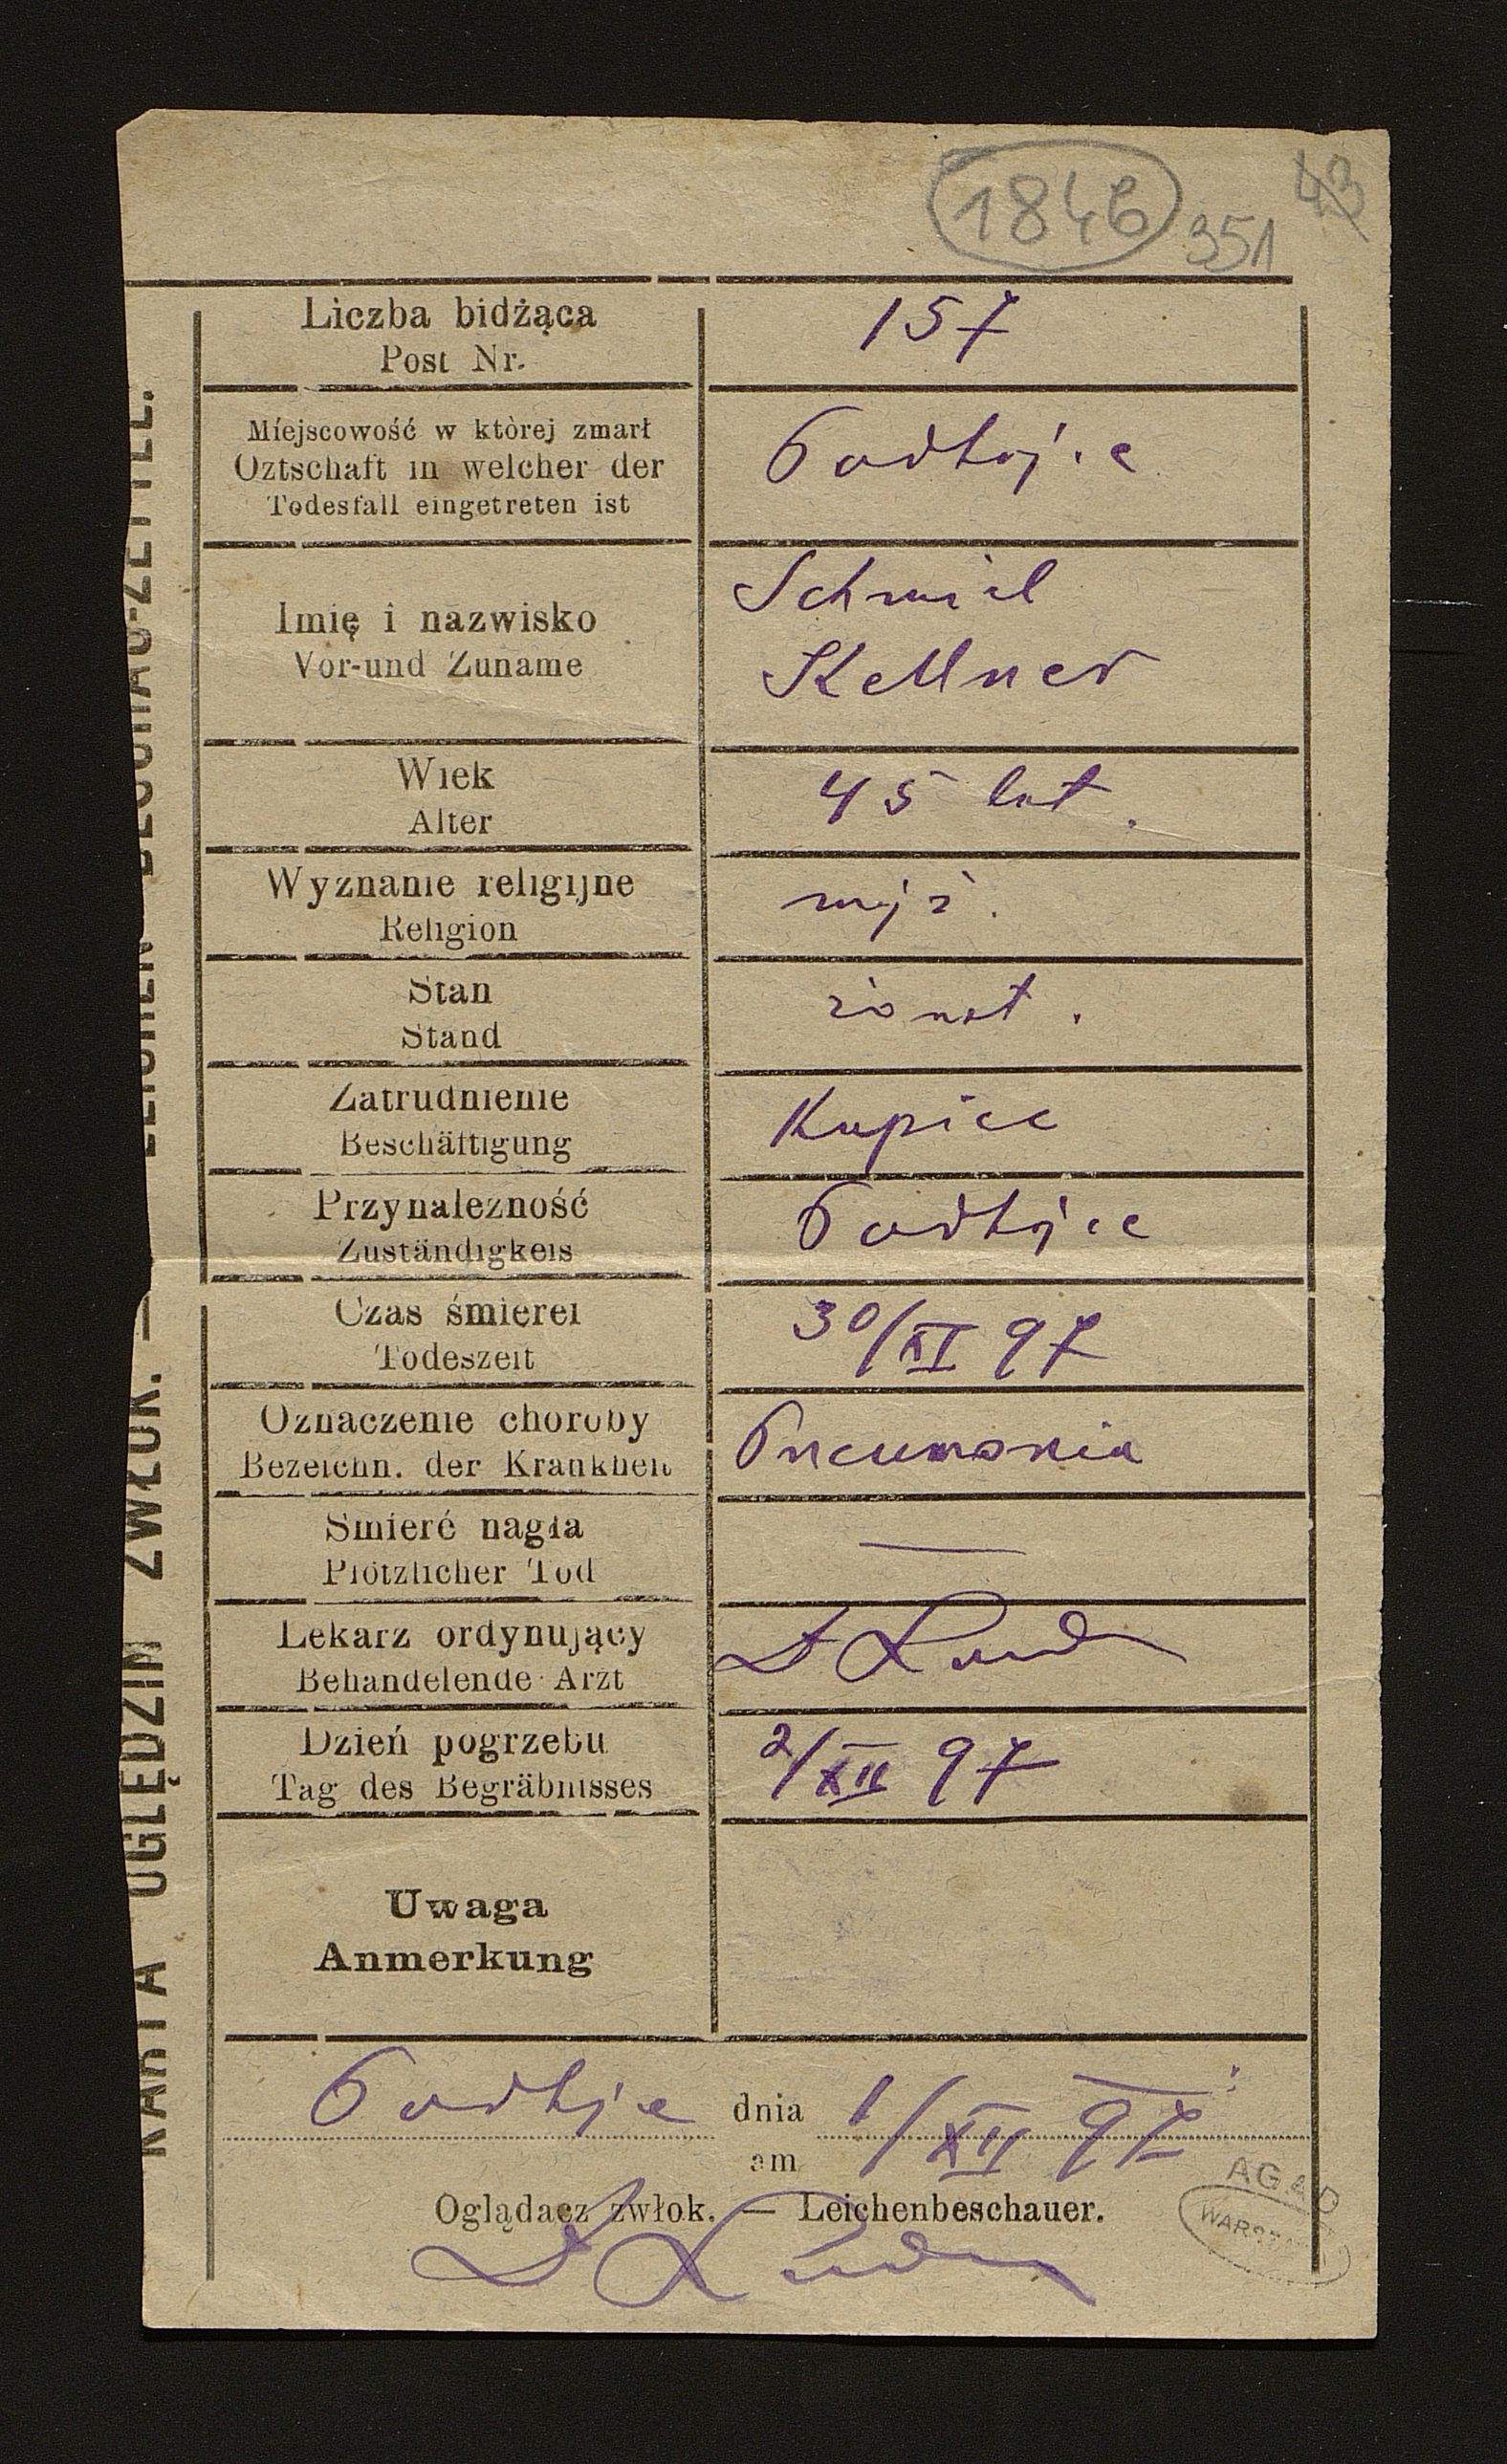 1846 351 43
Liczba bidżąca
Post Nr.
157
Miejscowość w której zmarł
Oztschaft in welcher der
Todesfall eingetreten ist
Podhajce
Imię i nazwisko
Vor-und Zuname
Schmiel
Kellner
Wiek
Alter
45 lat.
Wyznanie religijne
Religion
mojż.
Stan
Stand
żonat.
Zatrudnienie
Beschäftigung
Kupiec
Przynalezność
Zuständigkeis
Podhajce
Czas śmierei
Todeszeit
30/XI 97
Oznaczenie choroby
Bezeichn. der Krankheit
Pneumonia
Smierć nagła
Plötzlicher Tod
—
Lekarz ordynujący
Behandelende Arzt
Dzień pogrzebu
Tag des Begräbnisses
2/XII 97
Uwaga
Anmerkung
Podhajce dnia 1/XII 97
am
Oglądacz zwłok. — Leichenbeschauer.
KARTA OGLĘDZIN ZWŁOK. — LEICHEN-BESCHAU-ZETTEL.
AGAD
WARSZAWA